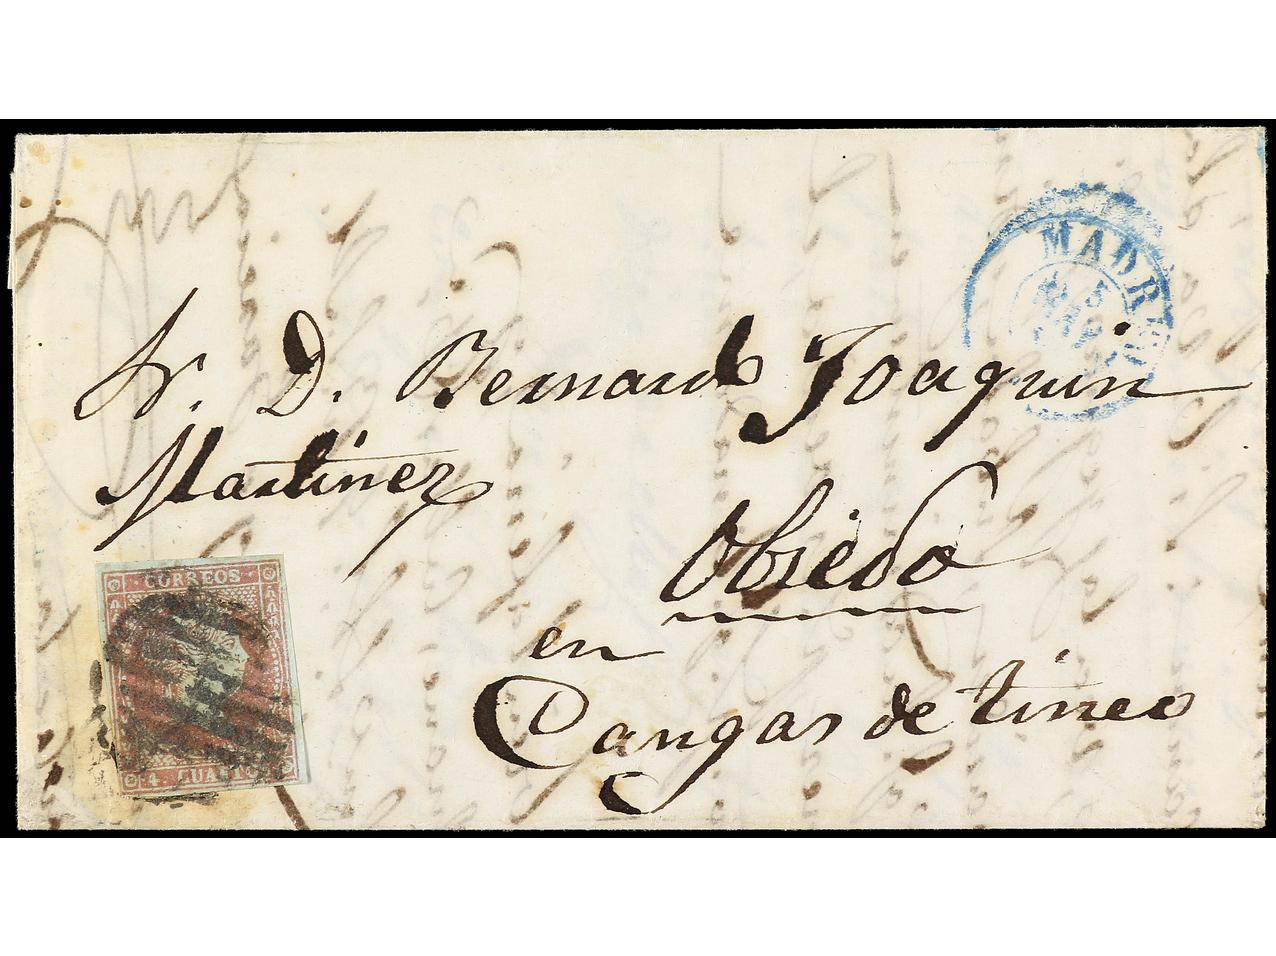 MADRI
5
Sr. D. Bernardo Joaquin
Martinez
Obiedo
en
Cangas de tineo
CORREOS
4 CUARTOS